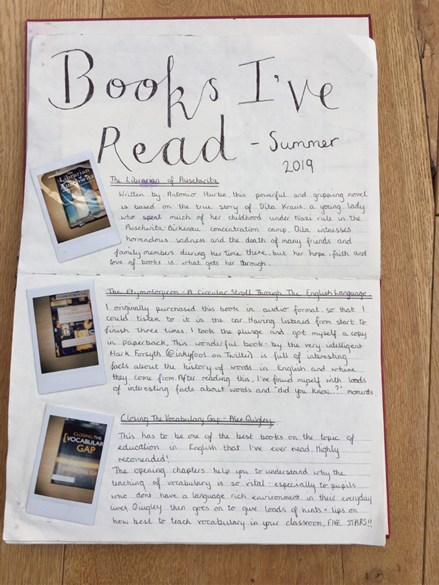 Books I've
Read - Summer
2019
The Librarian of Auschwitz
Written by Antonio Iturbe this powerful and gripping novel
is based on the true story of Dita Kraus, a young lady
who spent much of her childhood under Nazi rule in the
Auschwitz Birkenau concentration camp. Dita witnesses
horrendous sadness and the death of many friends and
family members during her time there, but her hope, faith and
love of books is what gets her through.
The Etymologicon - A Circular Stroll Through The English Language
I originally purchased this book in audio format, so that I
could listen to it in the car. Having listened from start to
finish three times, I took the plunge and got myself a copy
in paperback. This wonderful book by the very intelligent
Mark Forsyth (@inkyfool on Twitter) is full of interesting
facts about the history of words in English and where
they come from. After reading this, I've found myself with loads
of interesting facts about words and "did you know..." moments
CLOSING THE
VOCABULARY
GAP
Closing The Vocabulary Gap - Alex Quigley
This has to be one of the best books on the topic of
education in English that I've ever read. Highly
recomended!
The opening chapters help you to understand why the
teaching of vocabulary is so vital - especially to pupils
who dont have a language rich environment in their everyday
lives. Quigley then goes on to give loads of hints + tips on
how best to teach vocabulary in your classroom. FIVE STARS!!